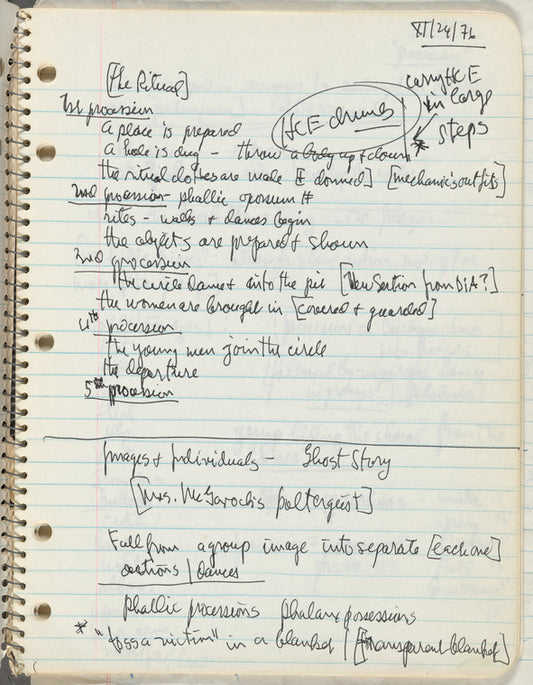 XI/24/76
[The Ritual]
carry HCE
in large
steps
HCE drums
1st procession
a place is prepared
a hole is dug - throw a body up & down *
the ritual clothes are made [& donned] [mechanic's outfits]
2nd procession - phallic opossum #
rites - walks & dances begin
the objects are prepared & shown
3rd procession
the circle dance & into the pit [New Section from DiA?]
the women are brought in [covered & guarded]
4th procession
the young men join the circle
the departure
5th procession
Images & Individuals - Ghost Story
[Mrs. poltergeist]
Fall from a group image into separate [each one]
sections | dances
Phallic processions phalanx possessions
* "toss a victim" in a blanket | [transparent blanket]